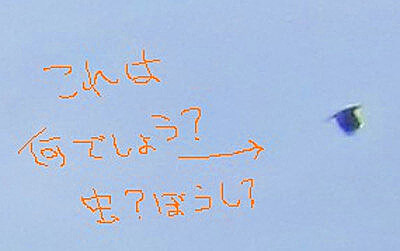 これは
何でしょう?
虫?ぼうし?